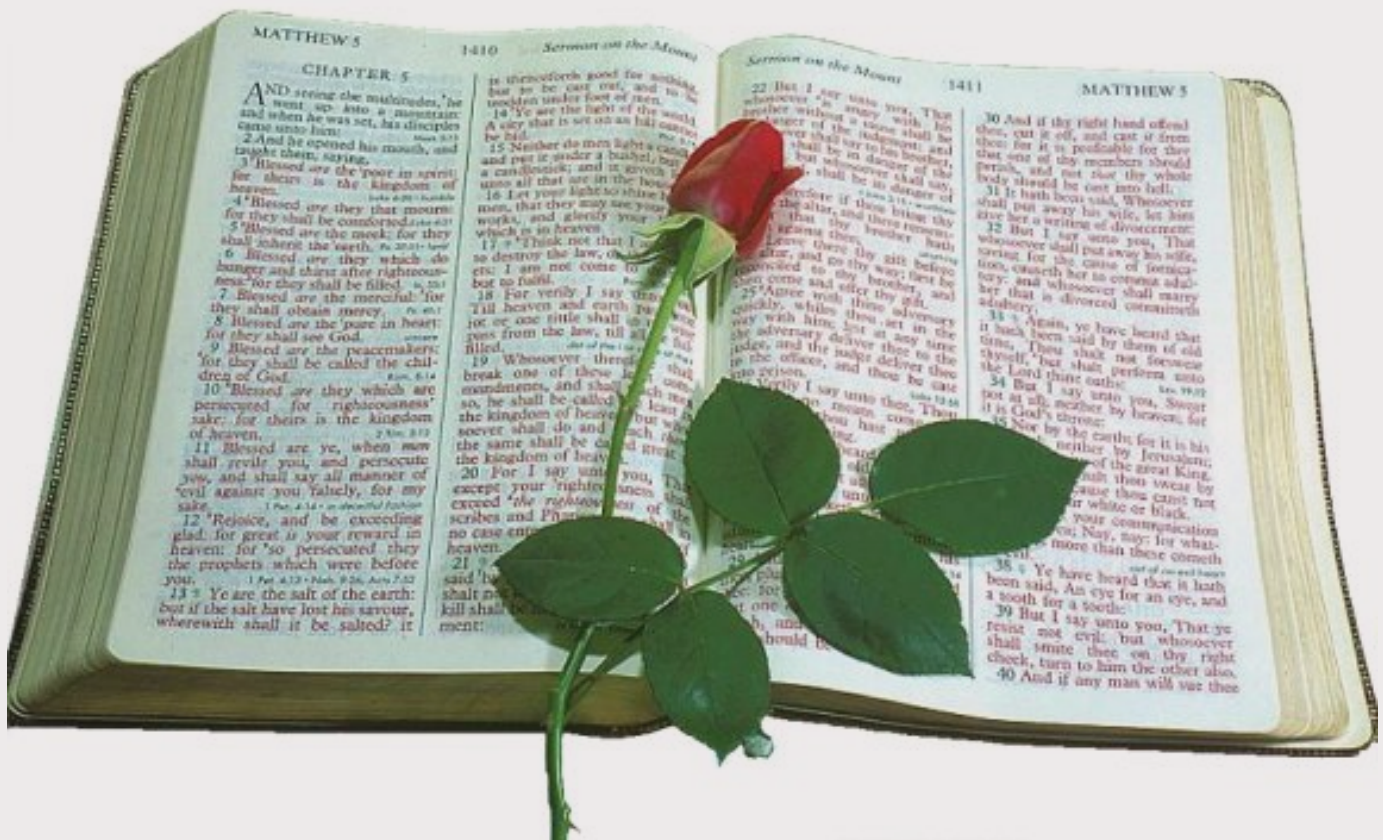 MATTHEW 5
1410
Sermon on the Mount
CHAPTER 5
AND seeing the multitudes, he
went up into a mountain:
and when he was set, his disciples
came unto him:
2 And he opened his mouth, and
taught them, saying,
3 Blessed are the poor in spirit:
for theirs is the kingdom of
heaven.
4 Blessed are they that mourn:
for they shall be comforted.
5 Blessed are the meek: for they
shall inherit the earth.
6 Blessed are they which do
hunger and thirst after righteous-
ness: for they shall be filled.
7 Blessed are the merciful: for
they shall obtain mercy.
8 Blessed are the pure in heart:
for they shall see God.
9 Blessed are the peacemakers:
for they shall be called the chil-
dren of God.
10 Blessed are they which are
persecuted for righteousness'
sake: for theirs is the kingdom
of heaven.
11 Blessed are ye, when men
shall revile you, and persecute
you, and shall say all manner of
evil against you falsely, for my
sake.
12 Rejoice, and be exceeding
glad: for great is your reward in
heaven: for so persecuted they
the prophets which were before
you.
13 Ye are the salt of the earth:
but if the salt have lost his savour,
wherewith shall it be salted? it
is thenceforth good for nothing,
but to be cast out, and to be
trodden under foot of men.
14 Ye are the light of the world.
A city that is set on an hill cannot
be hid.
15 Neither do men light a
and put it under a bushel, but
a candlestick; and it giveth
unto all that are in the
16 Let your light so shine
men, that they may see your
works, and glorify your
which is in heaven.
17 Think not that I
to destroy the law, or
ets: I am not come
but to fulfil.
18 For verily I say
Till heaven and earth
jot or one tittle shall
pass from the law, till
filled.
19 Whosoever
break one of these
mandments, and shall
so, he shall be called
the kingdom of heaven:
soever shall do and
the same shall be great
the kingdom of heaven.
20 For I say unto you,
except your righteousness shall
exceed the of the
scribes and
no case
heaven.
21
said
shalt not
kill shall
ment:
Sermon on the Mount
1411
MATTHEW 5
22 But I say unto you, That
whosoever is angry with his
brother without a cause shall be
of the judgment: and
shall say to his brother,
shall be in danger of the
but whosoever shall say,
shall be in danger of
if thou bring thy
the altar, and there
that thy brother hath
thee;
Leave there thy gift before
altar, and go thy way;
reconciled to thy brother, and
then come and offer thy gift.
25 Agree with thine adversary
quickly, whiles thou art in the
way with him; lest at any time
the adversary deliver thee to the
judge, and the judge deliver thee
to the officer, and thou be cast
into prison.
Verily I say unto thee, Thou
no means come
thou hast
30 And if thy right hand offend
thee, cut it off, and cast it from
thee: for it is profitable for thee
that one of thy members should
perish, and not that thy whole
body should be cast into hell.
31 It hath been said, Whosoever
shall put away his wife, let him
give her a writing of divorcement:
32 But I say unto you, That
whosoever shall put away his wife,
saving for the cause of fornica-
tion, causeth her to commit adul-
tery: and whosoever shall marry
her that is divorced committeth
adultery.
Again, ye have heard that
it hath been said by them of old
time, Thou shalt not forswear
thyself, but shalt perform unto
the Lord thine oaths:
34 But I say unto you, Swear
not at all; neither by heaven; for
it is God's throne:
Nor by the earth; for it is his
neither by Jerusalem;
of the great King.
shalt thou swear by
because thou canst not
hair white or black.
your communication
Nay, nay: for what-
more than these cometh
evil.
38 Ye have heard that it hath
been said, An eye for an eye, and
a tooth for a tooth:
39 But I say unto you, That ye
resist not evil: but whosoever
shall smite thee on thy right
cheek, turn to him the other also.
40 And if any man will sue thee